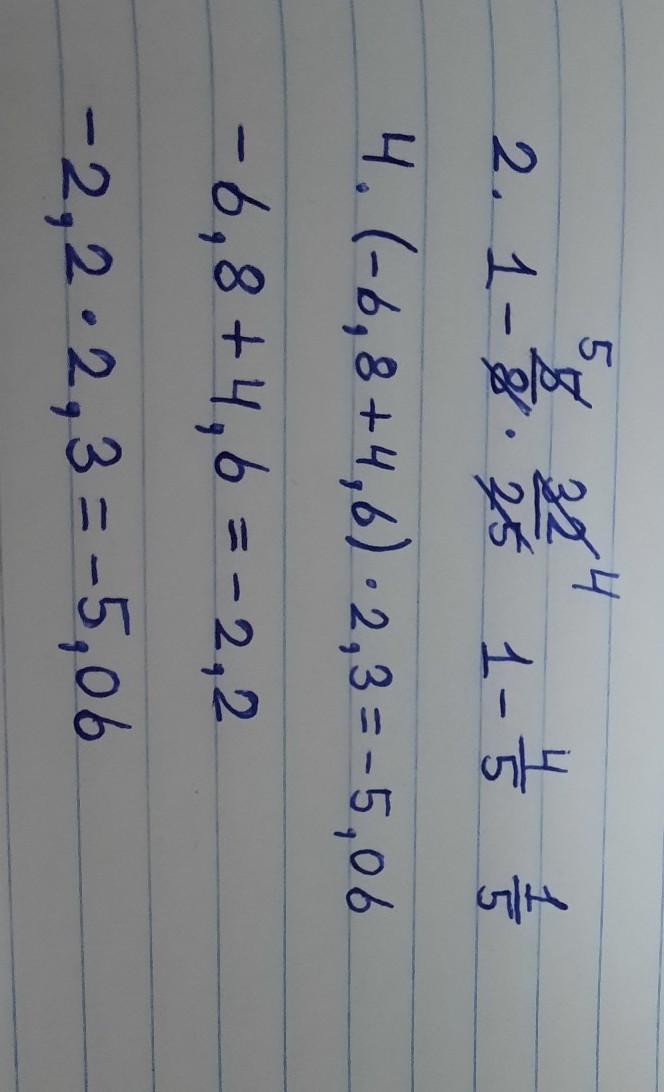 2. 1 - 5/8 · 32/25 1 - 4/5 1/5
5 4
4. (-6,8 + 4,6) · 2,3 = -5,06
-6,8 + 4,6 = -2,2
-2,2 · 2,3 = -5,06